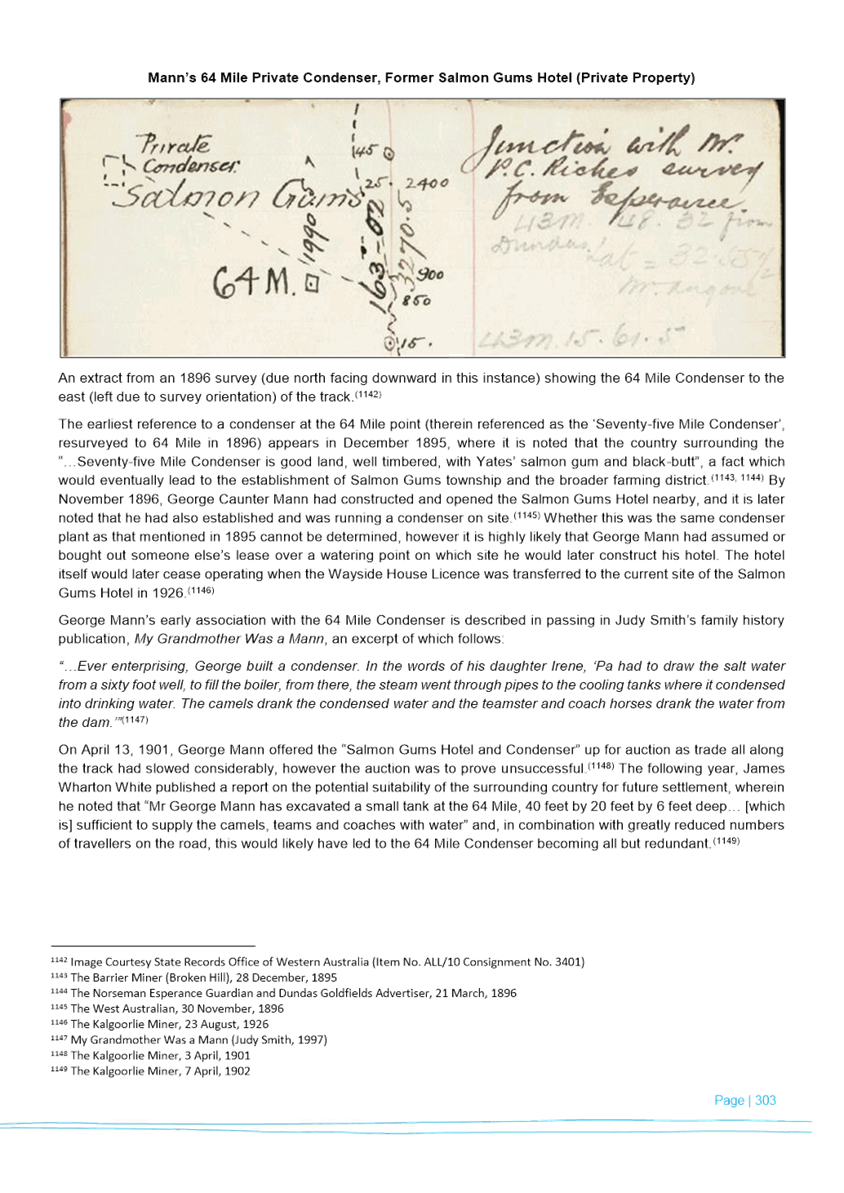 Mann's 64 Mile Private Condenser, Former Salmon Gums Hotel (Private Property)
Private
Condenser.
Salmon Gums
64 M.
1990
163°-02
3270.5
45
25.
2400
900
850
15.
Junction with Mr.
P.C. Riches survey
from Esperance.
43m. 48. 32 from
Dundas
Lat = 32.
Mr.
43m. 15. 61. 5
An extract from an 1896 survey (due north facing downward in this instance) showing the 64 Mile Condenser to the
east (left due to survey orientation) of the track.(1142)
The earliest reference to a condenser at the 64 Mile point (therein referenced as the 'Seventy-five Mile Condenser',
resurveyed to 64 Mile in 1896) appears in December 1895, where it is noted that the country surrounding the
"…Seventy-five Mile Condenser is good land, well timbered, with Yates' salmon gum and black-butt", a fact which
would eventually lead to the establishment of Salmon Gums township and the broader farming district.(1143, 1144) By
November 1896, George Caunter Mann had constructed and opened the Salmon Gums Hotel nearby, and it is later
noted that he had also established and was running a condenser on site.(1145) Whether this was the same condenser
plant as that mentioned in 1895 cannot be determined, however it is highly likely that George Mann had assumed or
bought out someone else's lease over a watering point on which site he would later construct his hotel. The hotel
itself would later cease operating when the Wayside House Licence was transferred to the current site of the Salmon
Gums Hotel in 1926.(1146)
George Mann's early association with the 64 Mile Condenser is described in passing in Judy Smith's family history
publication, My Grandmother Was a Mann, an excerpt of which follows:
"…Ever enterprising, George built a condenser. In the words of his daughter Irene, 'Pa had to draw the salt water
from a sixty foot well, to fill the boiler, from there, the steam went through pipes to the cooling tanks where it condensed
into drinking water. The camels drank the condensed water and the teamster and coach horses drank the water from
the dam.'"(1147)
On April 13, 1901, George Mann offered the "Salmon Gums Hotel and Condenser" up for auction as trade all along
the track had slowed considerably, however the auction was to prove unsuccessful.(1148) The following year, James
Wharton White published a report on the potential suitability of the surrounding country for future settlement, wherein
he noted that "Mr George Mann has excavated a small tank at the 64 Mile, 40 feet by 20 feet by 6 feet deep… [which
is] sufficient to supply the camels, teams and coaches with water" and, in combination with greatly reduced numbers
of travellers on the road, this would likely have led to the 64 Mile Condenser becoming all but redundant.(1149)
1142 Image Courtesy State Records Office of Western Australia (Item No. ALL/10 Consignment No. 3401)
1143 The Barrier Miner (Broken Hill), 28 December, 1895
1144 The Norseman Esperance Guardian and Dundas Goldfields Advertiser, 21 March, 1896
1145 The West Australian, 30 November, 1896
1146 The Kalgoorlie Miner, 23 August, 1926
1147 My Grandmother Was a Mann (Judy Smith, 1997)
1148 The Kalgoorlie Miner, 3 April, 1901
1149 The Kalgoorlie Miner, 7 April, 1902
Page | 303